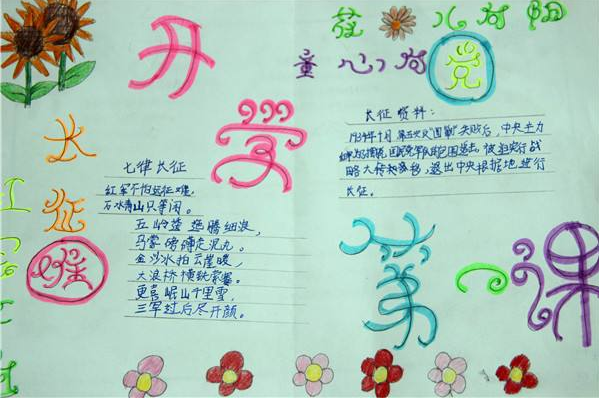 开学
第一课
儿向阳
童心向党
长征
七律长征
红军不怕远征难,
石水青山只等闲。
五岭逶迤腾细浪,
乌蒙磅礴走泥丸。
金沙水拍云崖暖,
大浪桥横铁索寒。
更喜岷山千里雪,
三军过后尽开颜。
长征资料:
1934年10月第五次反"围剿"失败后,中央主力
红军为摆脱国民党军队的包围追击。被迫实行战
略大转移,退出中央根据地进行
长征。